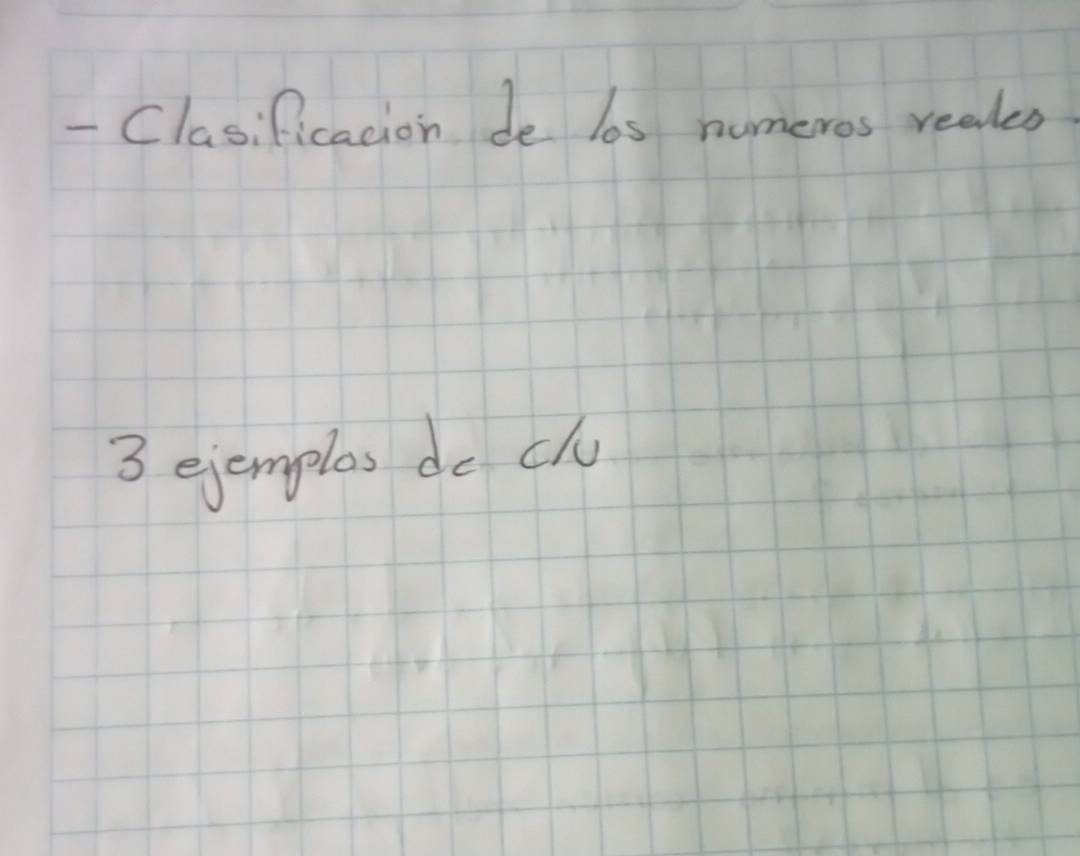 - Clasificación de los numeros reales.
3 ejemplos de c/u